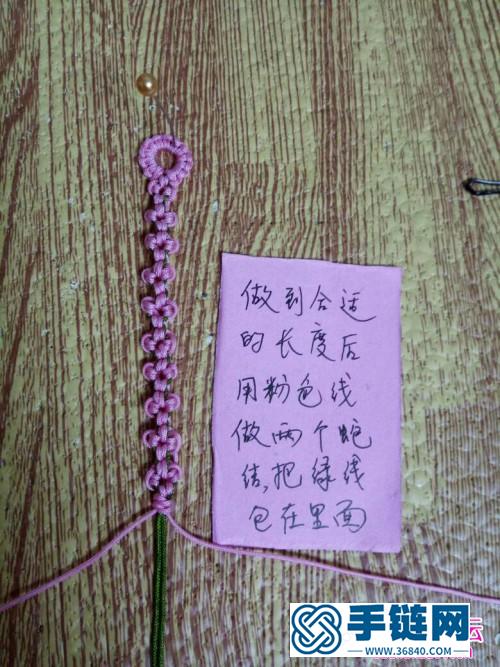 做到合适
的长度后
用粉色线
做两个蛇
结,把绿线
包在里面
手链网
www.36840.com